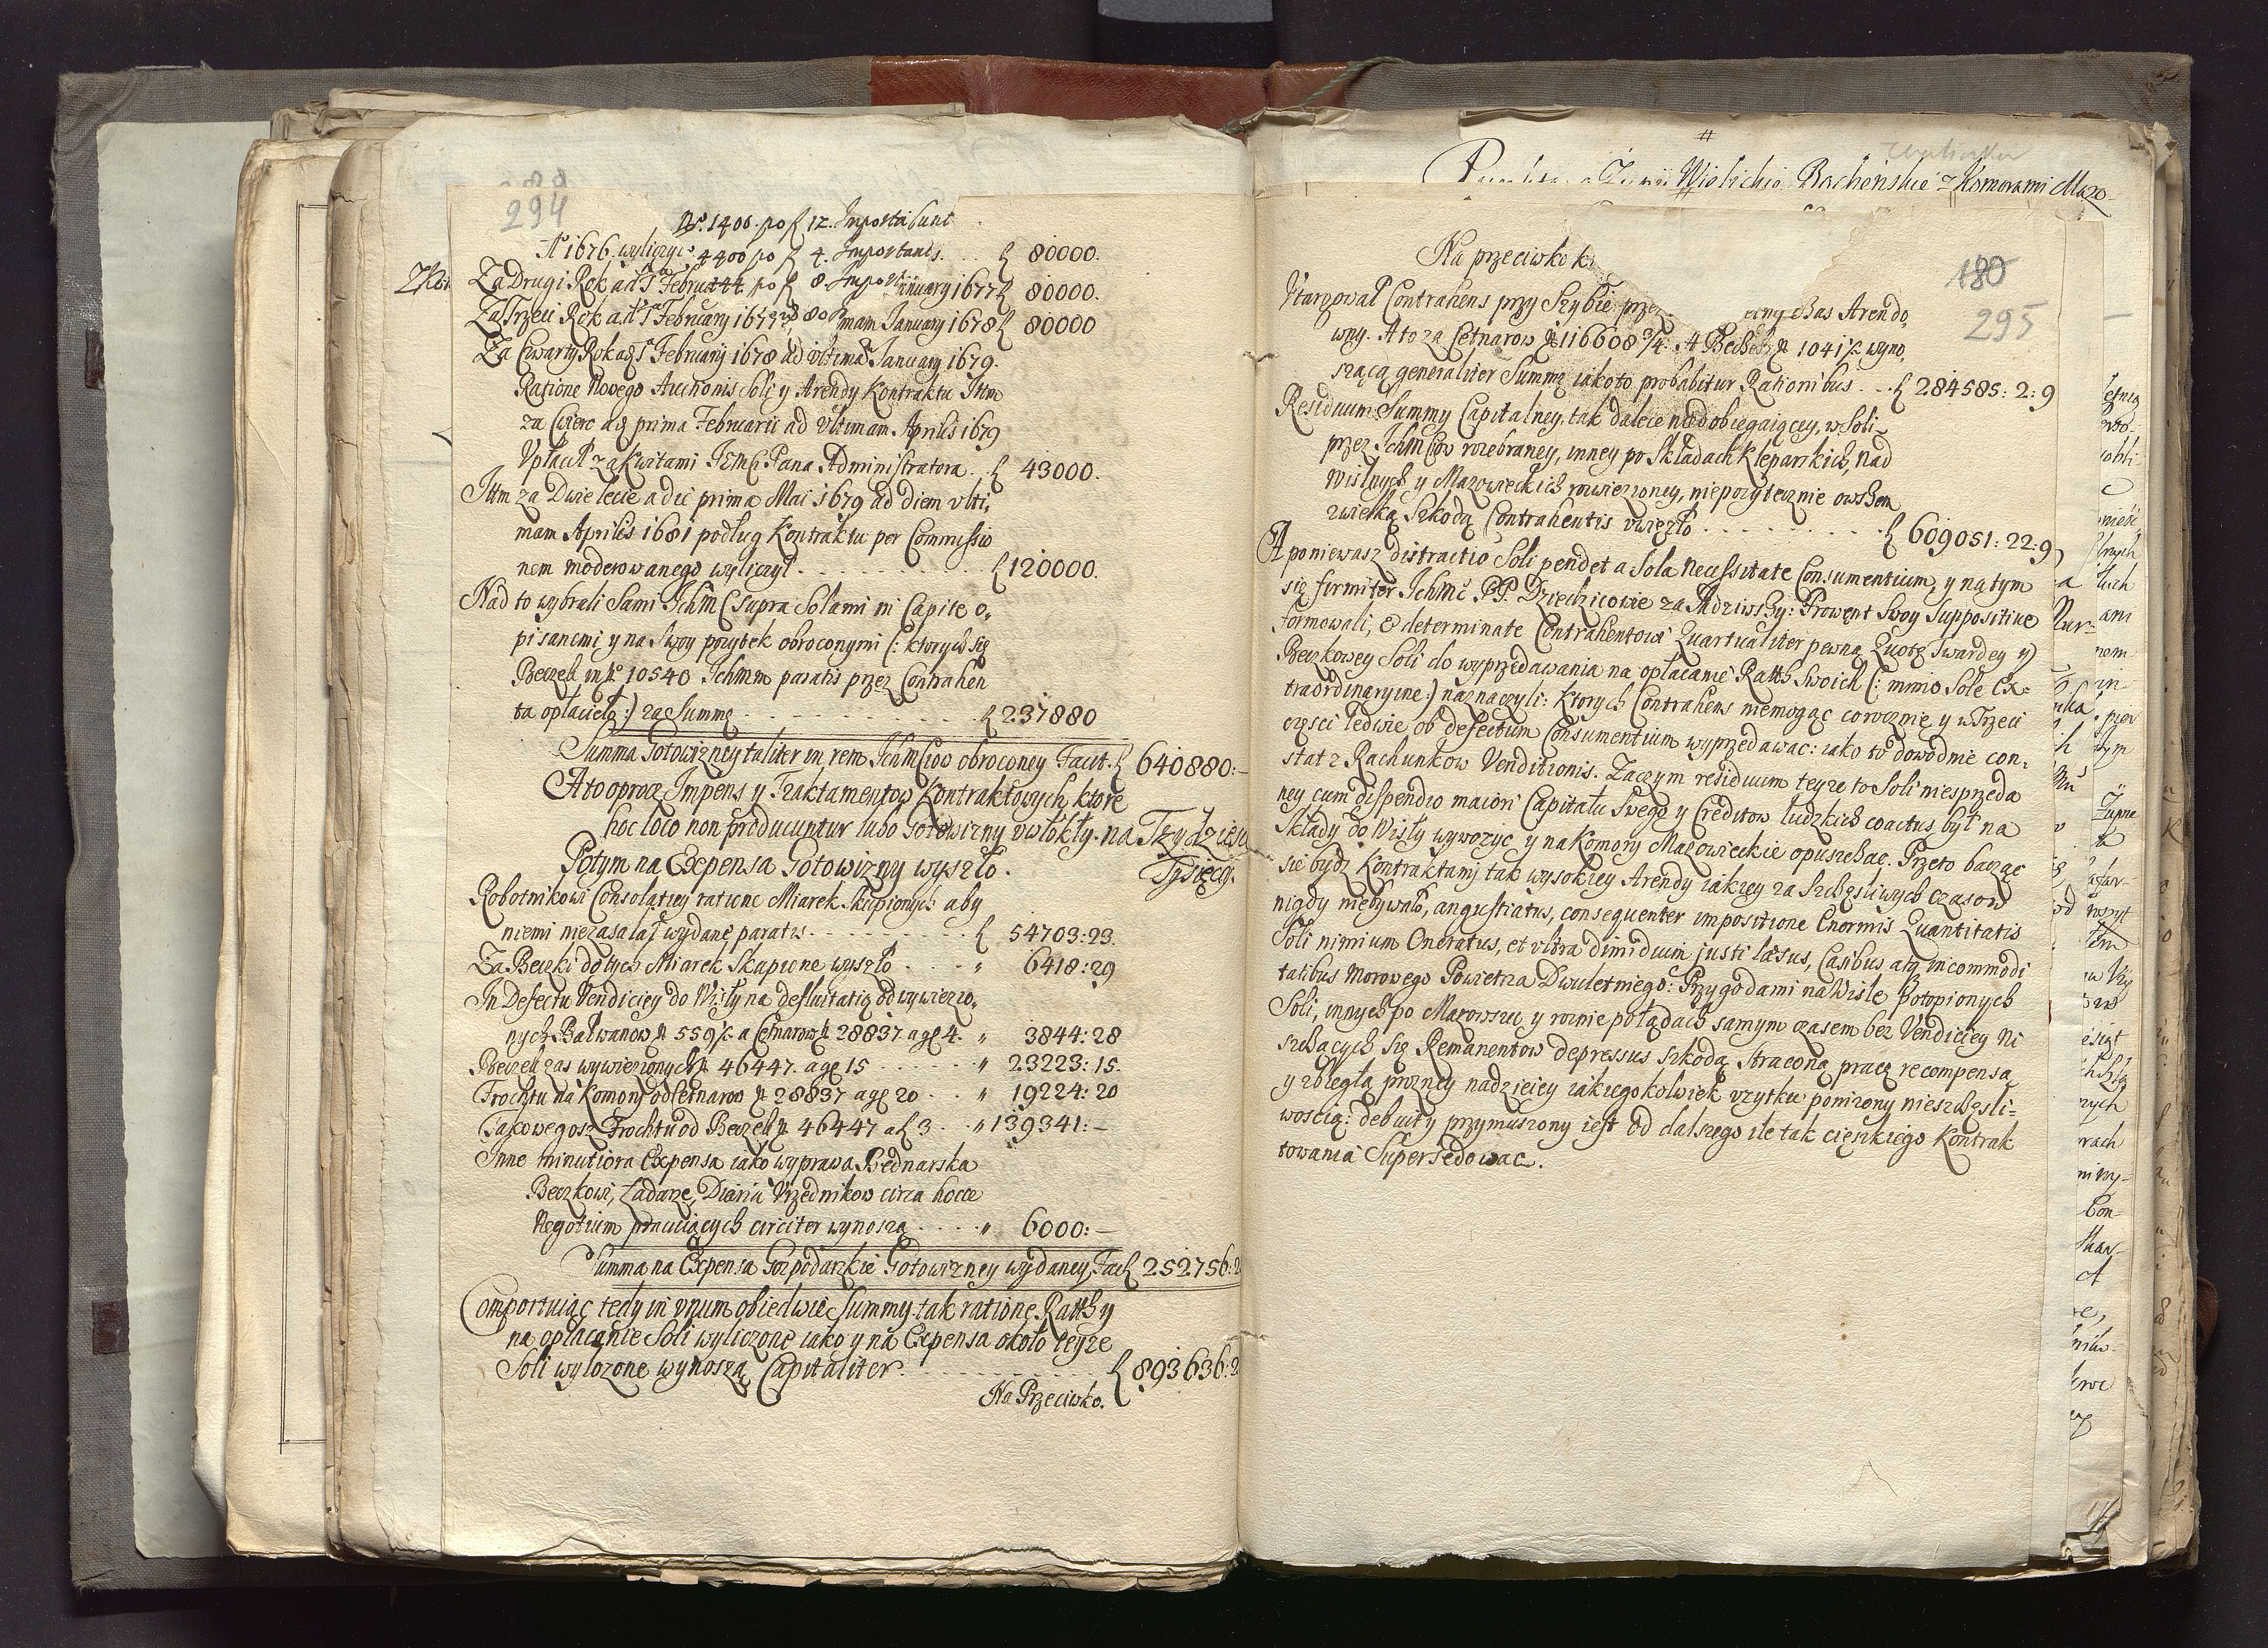 289
294
No. 1400. po f 12. Importabunt
Ao 1676 wyliczyć 4400 po f 4. Importands. f 80000.
Za Drugi Rok ad 1 Februa 44 po f 8. Impo nuary 1677 f 80000.
Za Trzeci Rok ad 1 February 1677 mam January 1678 f 80000
Za Czwarty Rok ad 1 February 1678 ad vltima January 1679.
Ratione Nowego Auchonis Soli y Arendy Kontraktu Ittm
za Cwierc ad prima Februarii ad vltimam Aprilis 1679
Vpłacił za Kwitami JemCi Pana Administratora . . f 43000.
Ittm za Dwie lecie a die prima Mai 1679 ad diem vlti,
mam Aprilis 1681 podług Kontraktu per Commissio
nem moderowanego wyliczył . . . f 120000.
Nad to wybrali Sami JchmC supra Solami in Capite o,
pisanemi y na Swoy pozytek obroconymi (: ktorych się
Beczek in No 10540 Jchmm paratis przez Contrahen
ta opłaciło :) za Summę . . . f 237880
Summa Gotowizney taliter in rem JchmCiow obroconey Facit. f 640880:–
A to oprocz Impens y Traktamentow Kontraktowych, ktore
hoc loco non producuntur lubo Gotowizny vwlokły. na Trzydzieści
Tysięcy.
Potym na Expensa Gotowizny wyszło.
Robotnikowi Consolatiey ratione Miarek Skupionych aby
niemi niezasalał wydane paratis . . . f 54703:23.
Za Beczki do tych Miarek Skupione wyszło . . . " 6418:29
In Defectu Vendiciey do Wisły na defluitatią odwywiezio,
nych Bałwanow No 559½ a Cetnarow No 28837 a gr 4. " 3844:28
Beczek zas wywiezionych No 46447. a gr 15 . . . " 23223:15.
Frochtu na Komory od Cetnarow No 28837 a gr 20 . . " 19224:20
Takowegosz Frochtu od Beczek No 46447 a f 3 . . " 139341:–
Inne minutiora Expensa iako wyprawa Bednarska
Beczkowi, Ładarze, Diaria Vrzednikow circa hocce
Negotium pracuiących circiter wynoszą . . . " 6000:–
Summa na Expensa Gospodarskie Gotowizney wydaney Fac f 252756:2
Comportuiąc tedy in vnum obiedwie Summy tak ratione Rathy
na opłacanie Soli wyliczone iako y na Expensa około teyze
Soli wyłozone wynoszą Capitaliter. . . . f 893636:2
Na Przeciwko.
Wielickie Bocheńskie z Komorami Mazo-
Na przeciwko
180
295
Vtargował Contrahens przy Szybie prze Bas Arendo,
wny. A to za Cetnarow No 116608 3/4. A Beczek No 1041½ wyno,
szącą generaliter Summę iako to probabitur Rationibus . . f 284585:2:9
Residuum Summy Capitalney, tak dalece niedobiegaiącey, w Soli
przez JchmCiow rozebraney, inney po Składach Kleparskich, Nad
Wislnych y Mazowieckich rozwiezioney, niepozytecznie owszem
z wielką Szkodą Contrahentis vwięzło . . . f 609051:22:9
A poniewasz distractio Soli pendet a sola necessitate Consumentium, y na tym
się firmiter Jchmć PP. Dziedzicowie zasadziwszy: Prowent Swoy suppositive
formowali, & determinate Contrahentowi Quartualiter pewną Quotę twardey y
Beczkowey Soli do wyprzedawania na opłacanie Rath Swoich (: mimo Sole Ex=
traordinaryine :) naznaczyli: Ktorych Contrahens niemogąc corocznie y w Trzeci
częsci ledwie, ob defectum Consumentium wyprzedawac: iako to dowodnie con,
stat z Rachunkow Venditionis. Zaczym residuum teyze to Soli niesprzeda
ney cum dispendio maiori Capitału Swego y Creditow ludzkich coactus był na
Składy do Wisły wywozyć y na Komory Mazowieckie opuszchac. Przeto bacząc
się bydz Kontraktami tak wysokiey Arendy iakiey za Szczęsliwych czasow
nigdy niebywało, angustiatus, consequenter impositione Enormis Quantitatis
Soli nimium Oneratus, et vltra dimidium justi læsus, Casibus atq incommodi
tatibus Morowego Powietrza Dwuletniego: Przygodami na Wisle potopionych
Soli, innych po Mazowszu y roznie po łądach samym czasem bez Vendiciey Ni
szczących się Remanentow depressus szkodą, straconą pracą recompensą,
y zbiegłą prozney nadzieiey iakiegokolwiek vzytku ponizony nieszczęsli=
woscią: debuit y przymuszony iest od dalszego ile tak cięszkiego Kontrak
towania Supersedowac.